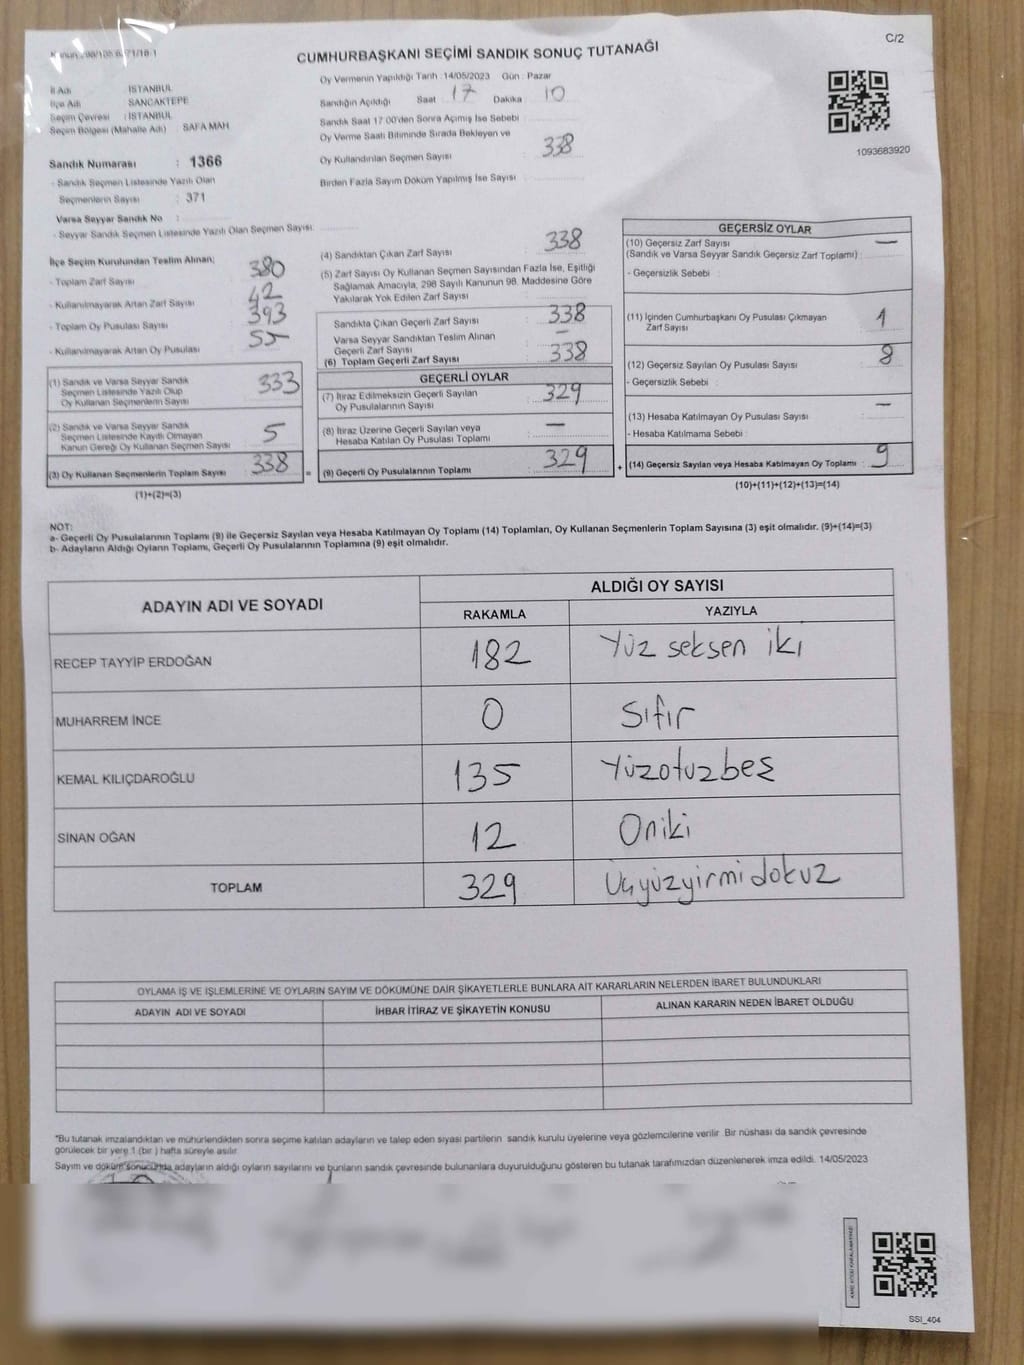 C/2
CUMHURBAŞKANI SEÇİMİ SANDIK SONUÇ TUTANAĞI
İl Adı : İSTANBUL
İlçe Adı : SANCAKTEPE
Seçim Çevresi : İSTANBUL
Seçim Bölgesi (Mahalle Adı) : SAFA MAH
Sandık Numarası : 1366
- Sandık Seçmen Listesinde Yazılı Olan
Seçmenlerin Sayısı : 371
Varsa Seyyar Sandık No :
- Seyyar Sandık Seçmen Listesinde Yazılı Olan Seçmen Sayısı:
Oy Vermenin Yapıldığı Tarih : 14/05/2023 Gün : Pazar
Sandığın Açıldığı Saat 17 Dakika 10
Sandık Saat 17:00'den Sonra Açımış İse Sebebi :
Oy Verme Saati Bitiminde Sırada Bekleyen ve
Oy Kullandırılan Seçmen Sayısı : 338
Birden Fazla Sayım Döküm Yapılmış İse Sayısı :
1093683920
İlçe Seçim Kurulundan Teslim Alınan;
- Toplam Zarf Sayısı : 380
- Kullanılmayarak Artan Zarf Sayısı : 42
- Toplam Oy Pusulası Sayısı : 393
- Kullanılmayarak Artan Oy Pusulası : 55
(1) Sandık ve Varsa Seyyar Sandık
Seçmen Listesinde Yazılı Olup
Oy Kullanan Seçmenlerin Sayısı : 333
(2) Sandık ve Varsa Seyyar Sandık
Seçmen Listesinde Kayıtlı Olmayan
Kanun Gereği Oy Kullanan Seçmen Sayısı : 5
(3) Oy Kullanan Seçmenlerin Toplam Sayısı : 338
(1)+(2)=(3)
(4) Sandıktan Çıkan Zarf Sayısı : 338
(5) Zarf Sayısı Oy Kullanan Seçmen Sayısından Fazla İse, Eşitliği
Sağlamak Amacıyla, 298 Sayılı Kanunun 98. Maddesine Göre
Yakılarak Yok Edilen Zarf Sayısı :
Sandıkta Çıkan Geçerli Zarf Sayısı : 338
Varsa Seyyar Sandıktan Teslim Alınan
Geçerli Zarf Sayısı : —
(6) Toplam Geçerli Zarf Sayısı : 338
GEÇERLİ OYLAR
(7) İtiraz Edilmeksizin Geçerli Sayılan
Oy Pusulalarının Sayısı : 329
(8) İtiraz Üzerine Geçerli Sayılan veya
Hesaba Katılan Oy Pusulası Toplamı : —
= (9) Geçerli Oy Pusulalarının Toplamı : 329
GEÇERSİZ OYLAR
(10) Geçersiz Zarf Sayısı
(Sandık ve Varsa Seyyar Sandık Geçersiz Zarf Toplamı) : —
- Geçersizlik Sebebi :
(11) İçinden Cumhurbaşkanı Oy Pusulası Çıkmayan
Zarf Sayısı : 1
(12) Geçersiz Sayılan Oy Pusulası Sayısı : 8
- Geçersizlik Sebebi :
(13) Hesaba Katılmayan Oy Pusulası Sayısı : —
- Hesaba Katılmama Sebebi :
+ (14) Geçersiz Sayılan veya Hesaba Katılmayan Oy Toplamı : 9
(10)+(11)+(12)+(13)=(14)
NOT:
a- Geçerli Oy Pusulalarının Toplamı (9) ile Geçersiz Sayılan veya Hesaba Katılmayan Oy Toplamı (14) Toplamları, Oy Kullanan Seçmenlerin Toplam Sayısına (3) eşit olmalıdır. (9)+(14)=(3)
b- Adayların Aldığı Oyların Toplamı, Geçerli Oy Pusulalarının Toplamına (9) eşit olmalıdır.
ADAYIN ADI VE SOYADI ALDIĞI OY SAYISI
RAKAMLA YAZIYLA
RECEP TAYYİP ERDOĞAN 182 Yüz seksen iki
MUHARREM İNCE 0 Sıfır
KEMAL KILIÇDAROĞLU 135 Yüzotuzbeş
SİNAN OĞAN 12 Oniki
TOPLAM 329 Üçyüzyirmidokuz
OYLAMA İŞ VE İŞLEMLERİNE VE OYLARIN SAYIM VE DÖKÜMÜNE DAİR ŞİKAYETLERLE BUNLARA AİT KARARLARIN NELERDEN İBARET BULUNDUKLARI
ADAYIN ADI VE SOYADI İHBAR İTİRAZ VE ŞİKAYETİN KONUSU ALINAN KARARIN NEDEN İBARET OLDUĞU
*Bu tutanak imzalandıktan ve mühürlendikten sonra seçime katılan adayların ve talep eden siyasi partilerin sandık kurulu üyelerine veya gözlemcilerine verilir. Bir nüshası da sandık çevresinde
görülecek bir yere 1 (bir ) hafta süreyle asılır.
Sayım ve döküm sonucunda adayların aldığı oyların sayılarını ve bunların sandık çevresinde bulunanlara duyurulduğunu gösteren bu tutanak tarafımızdan düzenlenerek imza edildi. 14/05/2023
SSI_404